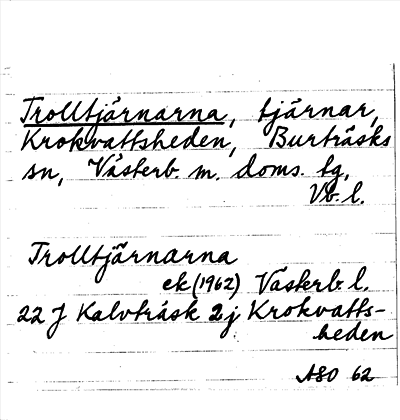 Trolltjärnarna, tjärnar,
Krokvattsheden, Burträsks
sn, Västerb. m. doms. tg,
Vb. l.
Trolltjärnarna
ek (1962) Västerb. l.
22 J Kalvträsk 2j Krokvatts-
heden
ASO 62